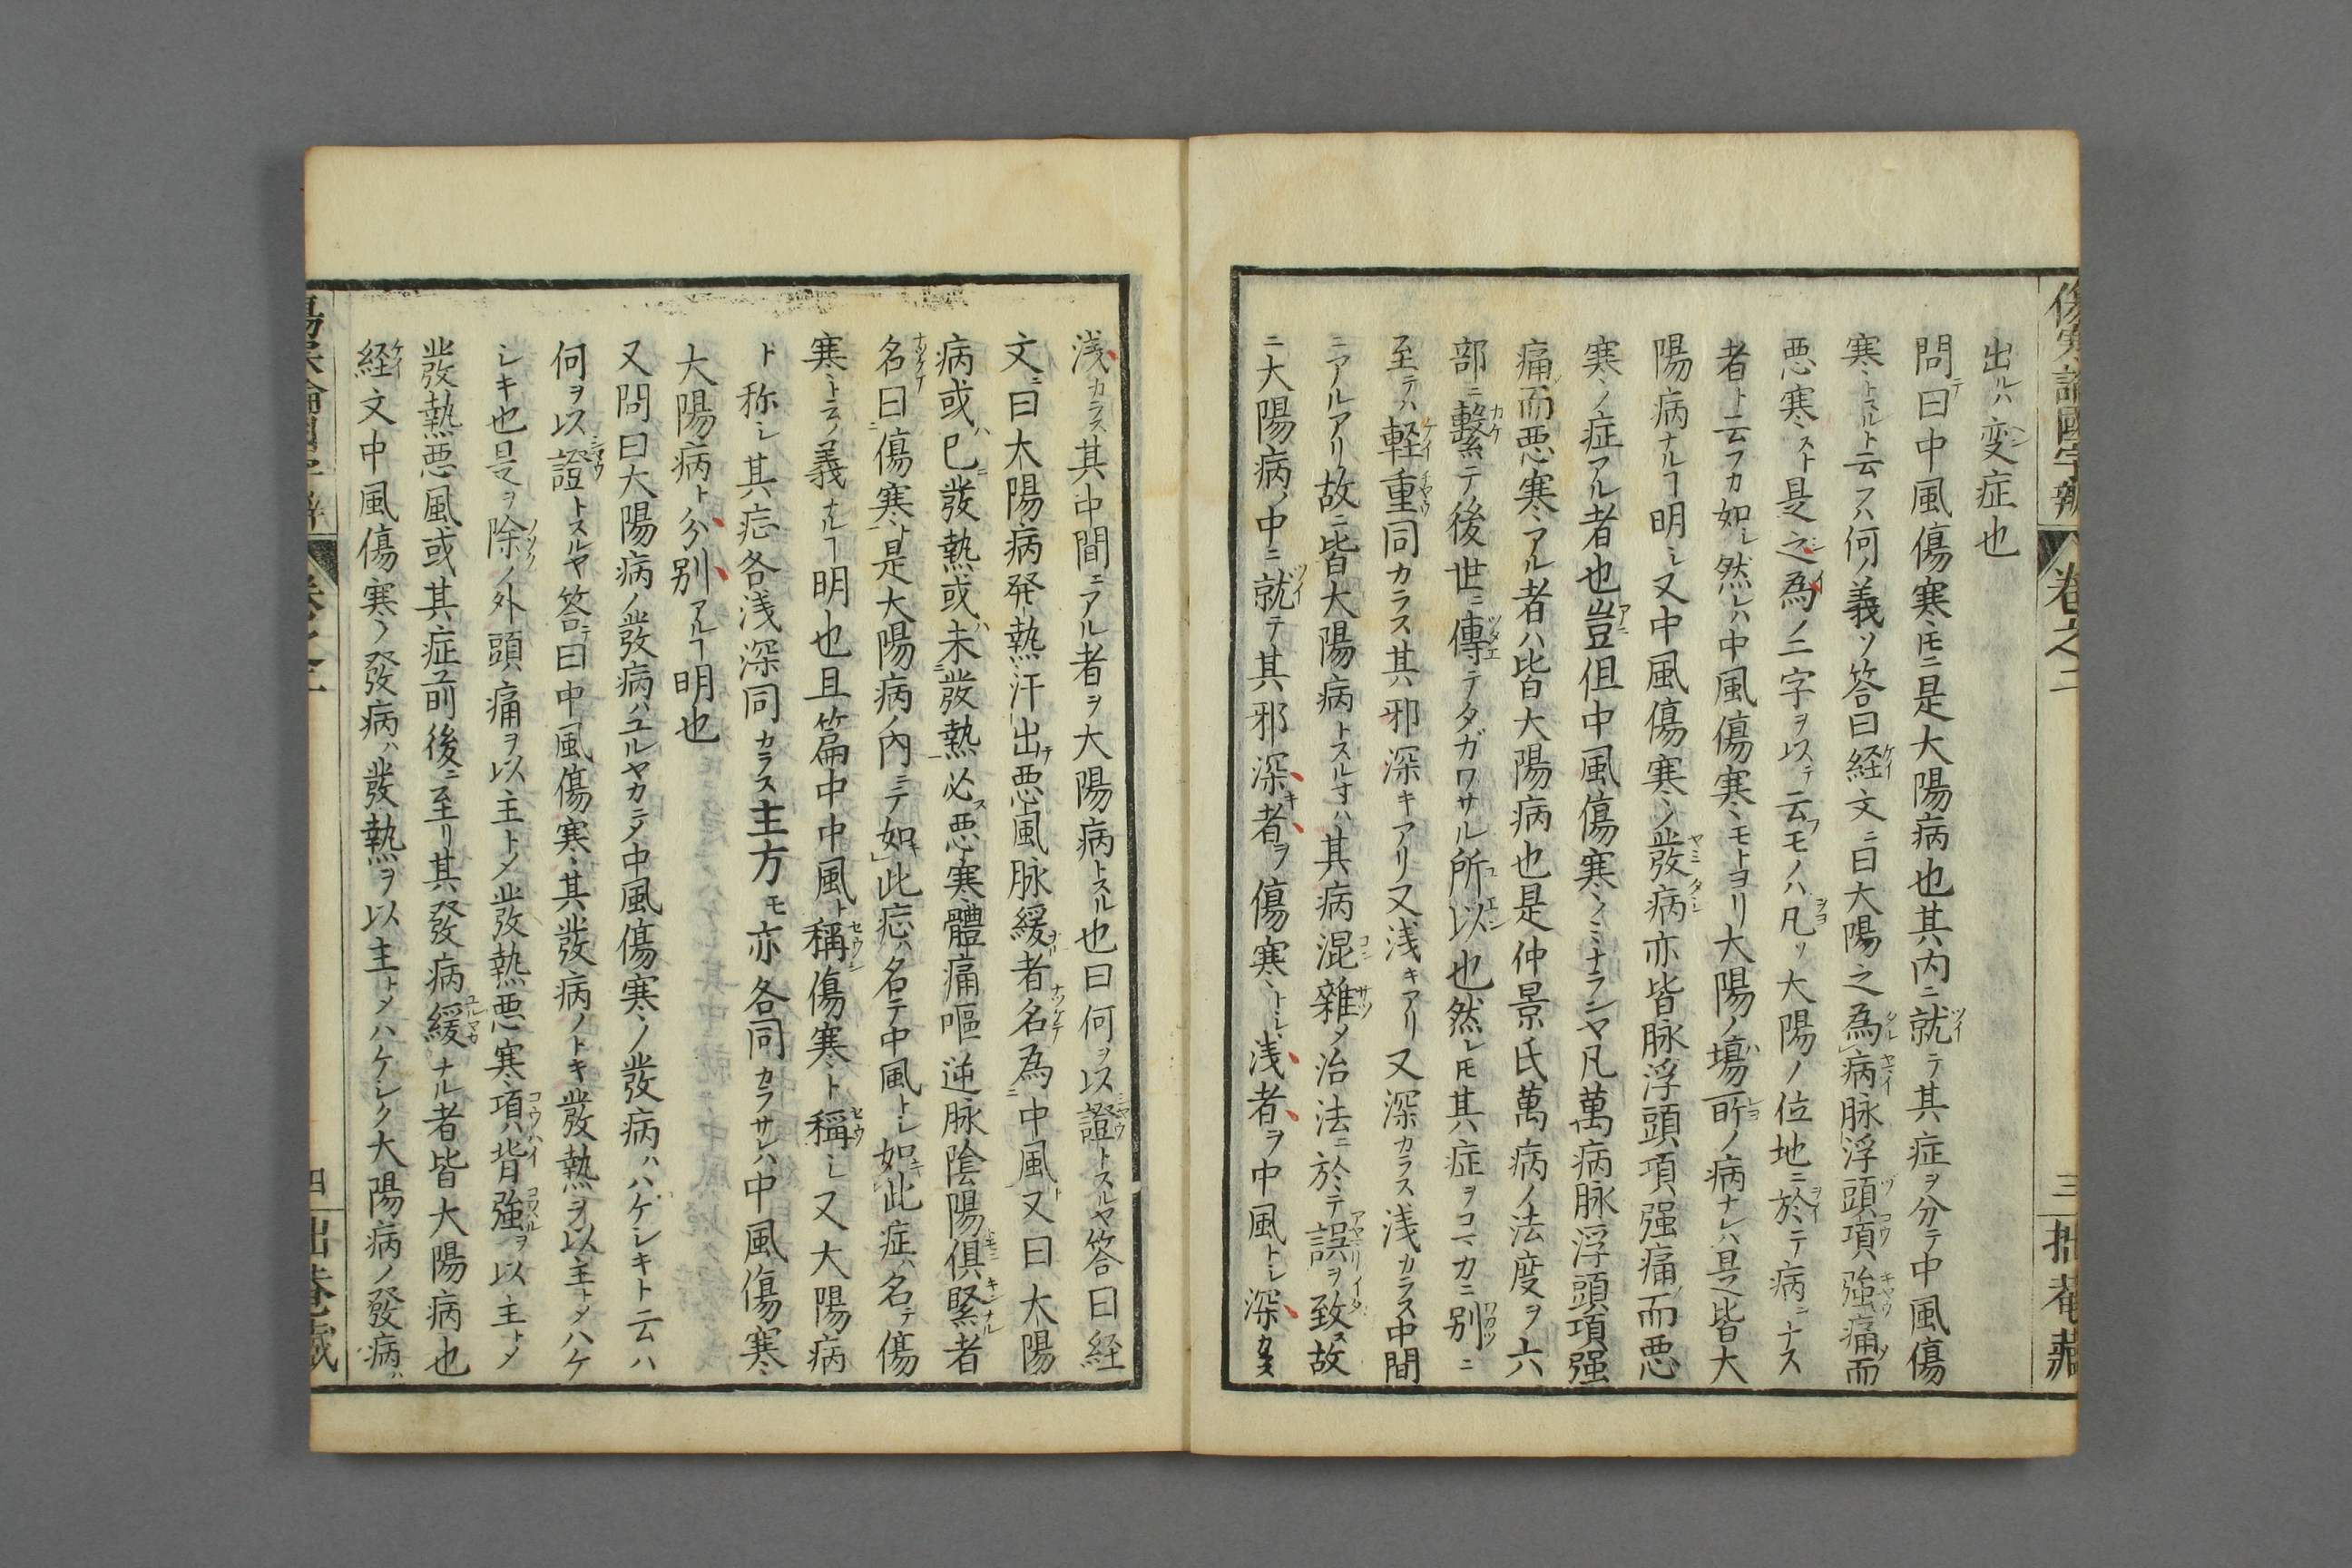 傷寒論國字辨 卷之二 三 拙菴藏
出ルハ変症也
問テ曰中風傷寒トモニ是大陽病也其内ニ就テ其症ヲ分テ中風傷
寒トスルト云フハ何ノ義ソ答曰経文ニ曰大陽之為病脉浮頭項強痛而
悪寒スト是之為ノ二字ヲ以テ云モノハ凡ソ大陽ノ位地ニ於テ病ニナス
者ト云フカ如シ然レハ中風傷寒モトヨリ大陽ノ塲所ノ病ナレハ是皆大
陽病ナルヿ明シ又中風傷寒ノ發病亦皆脉浮頭項强痛而悪
寒ノ症アル者也豈但中風傷寒ノミナランヤ凡萬病脉浮頭項强
痛而悪寒アル者ハ皆大陽病也是仲景氏萬病ノ法度ヲ六
部ニ繫テ後世ニ傳テタガワサル所以也然レトモ其症ヲコマカニ別ニ
至テハ軽重同カラス其邪深キアリ又浅キアリ又深カラス浅カラス中間
ニアルアリ故ニ皆大陽病トスルヰハ其病混雑メ治法ニ於テ誤ヲ致ス故
ニ大陽病ノ中ニ就テ其邪深キ者ヲ傷寒トシ浅者ヲ中風トシ深カラス
浅カラス其中間ニアル者ヲ大陽病トスル也曰何ヲ以證トスルヤ答曰経
文ニ曰太陽病発熱汗出悪風脉緩者名為中風又曰太陽
病或ハ已發熱或ハ未發熱必悪寒體痛嘔逆脉陰陽俱緊者
名曰傷寒ト是大陽病ノ内ニテ如此症ハ名テ中風トシ如此症ハ名テ傷
寒ト云ノ義ナルヿ明也且篇中中風ト稱傷寒ト稱シ又大陽病
ト称シ其症各浅深同カラス主方モ亦各同カラサレハ中風傷寒
大陽病ト分別アルヿ明也
又問曰大陽病ノ發病ハユルヤカニメ中風傷寒ノ發病ハハケシキト云ハ
何ヲ以證トスルヤ答曰中風傷寒其發病ノトキ發熱ヲ以主トメハケ
シキ也是ヲ除ノ外頭痛ヲ以主トメ發熱悪寒項背強ヲ以主トメ
發熱悪風或其症前後ニ至リ其發病緩ナル者皆大陽病也
経文中風傷寒ノ發病ハ發熱ヲ以主トメハケシク大陽病ノ發病ハ
四